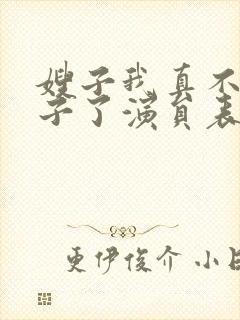 嫂子我真不
子了演员表
更伊俊介 小